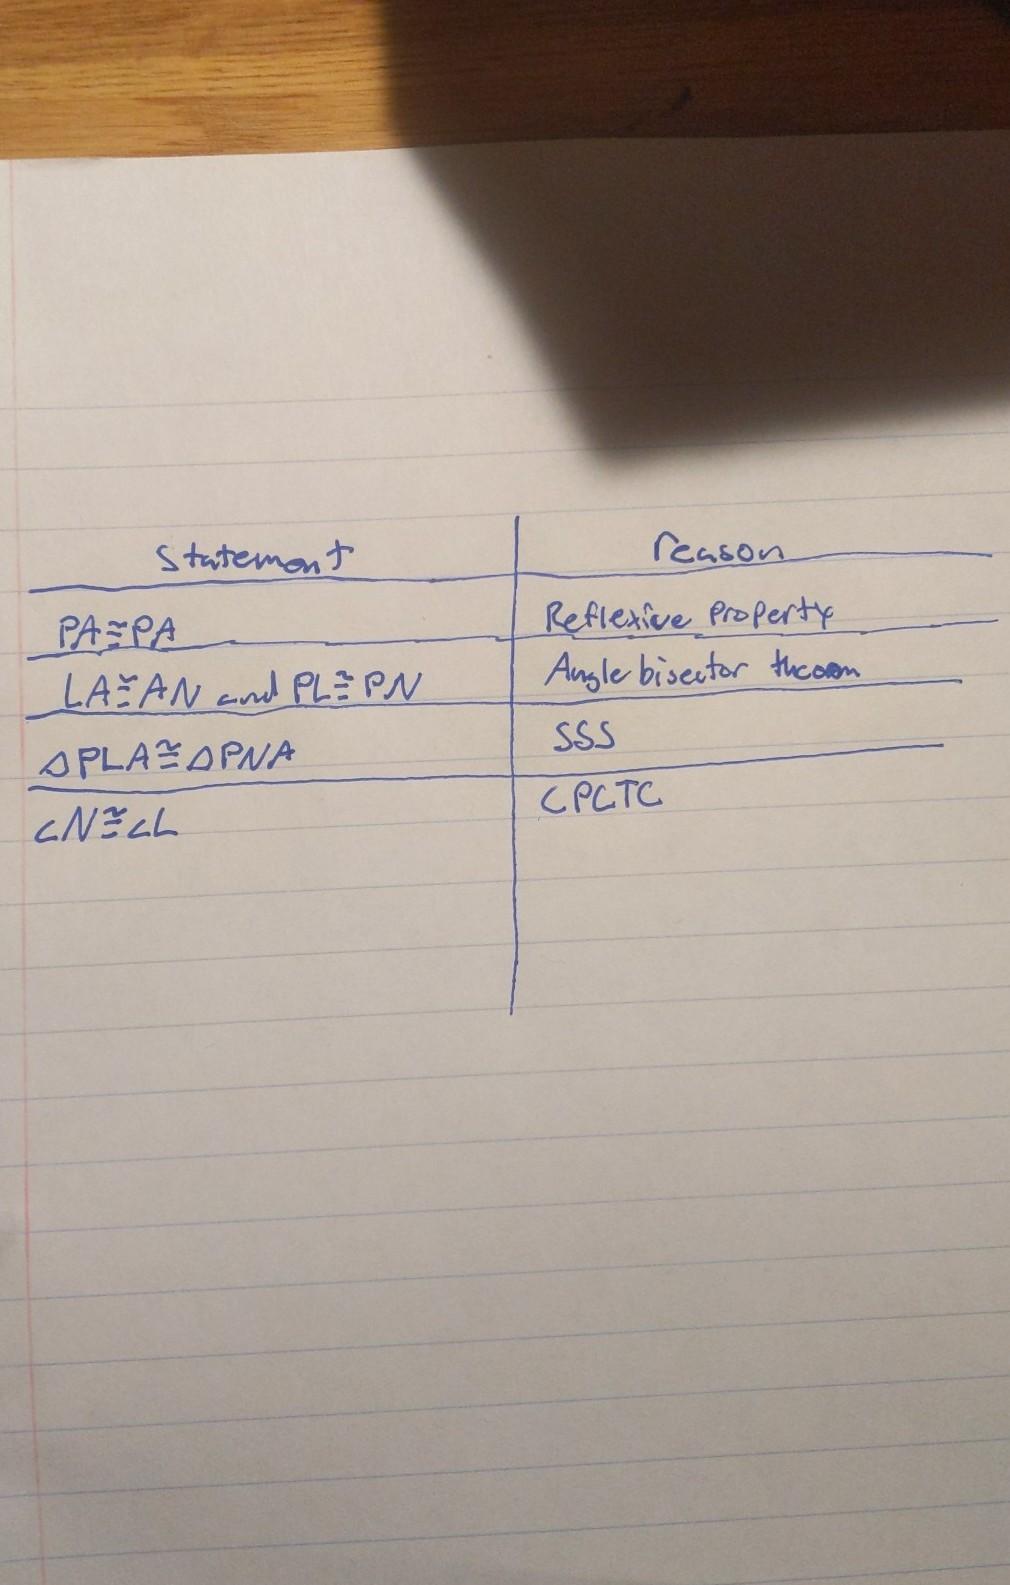 Statement reason
PA≅PA Reflexive Property
LA≅AN and PL≅PN Angle bisector theorem
△PLA≅△PNA SSS
∠N≅∠L CPCTC